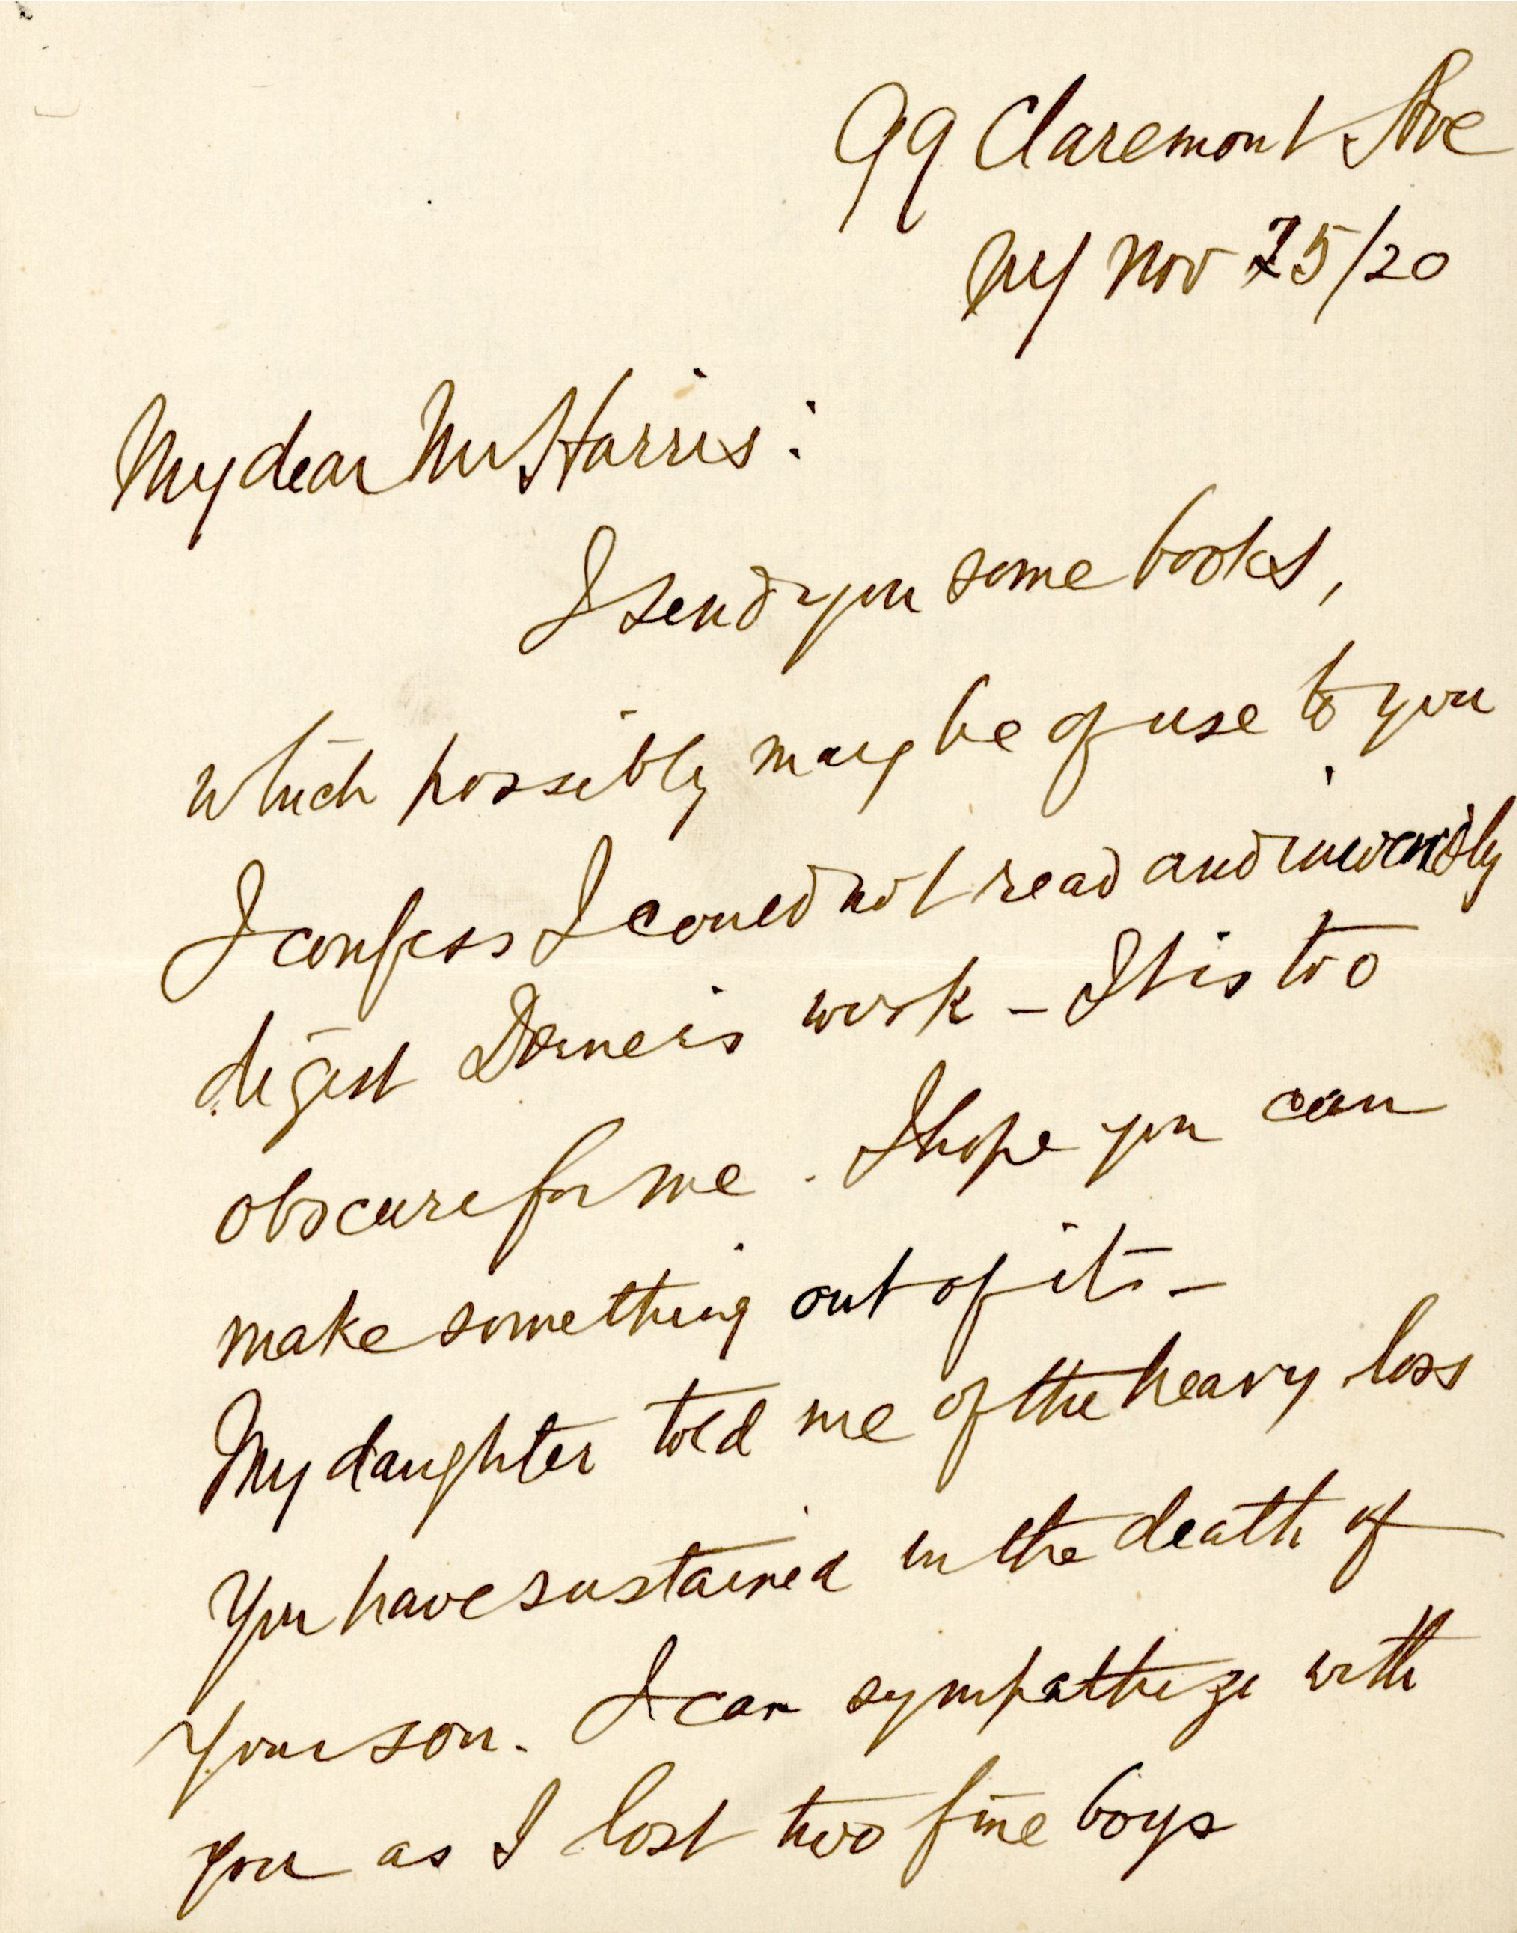 99 Claremont Ave
NY Nov 25/20
My dear Mr Harris:
I send you some books,
which possibly may be of use to you
I confess I could not read and inwardly
digest Dorner's work – It is too
obscure for me. I hope you can
make something out of it. –
My daughter told me of the heavy loss
You have sustained in the death of
Your son. I can sympathize with
you as I lost two fine boys